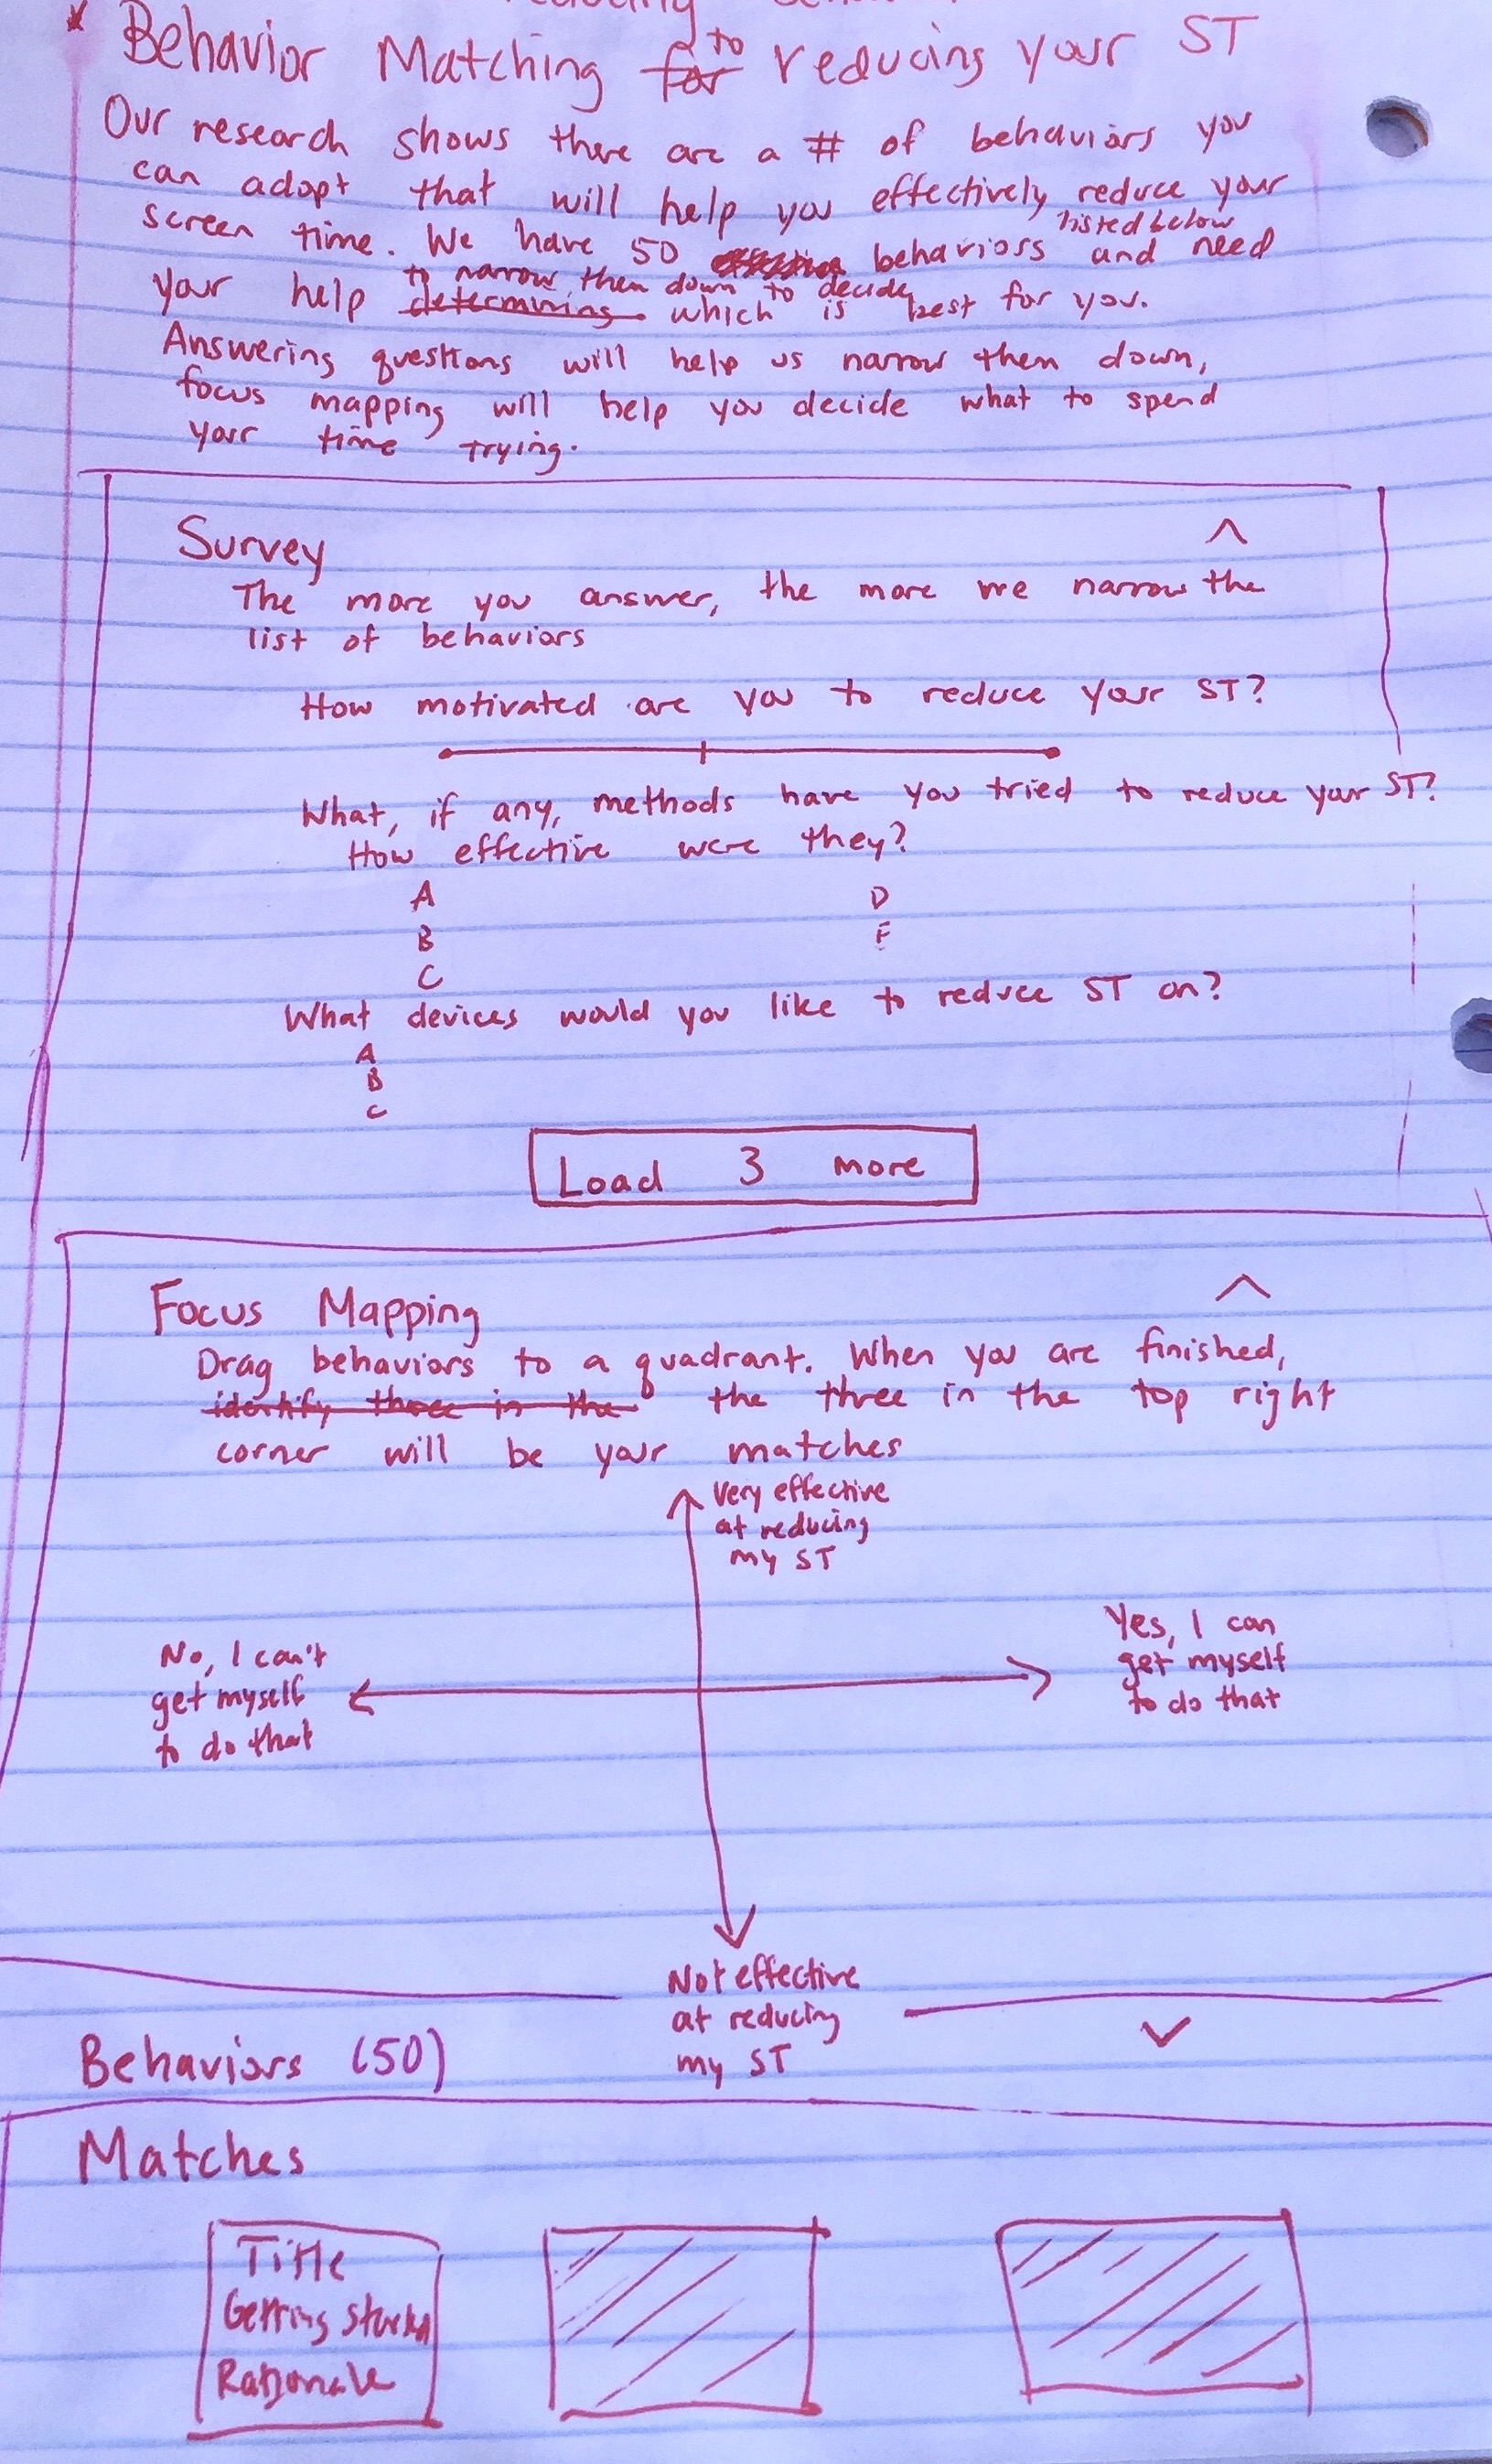 Behavior Matching for to reducing your ST
Our research shows there are a # of behaviors you
can adopt that will help you effectively reduce your
screen time. We have 50 effective behaviors listed below and need
your help determining to narrow them down to decide which is best for you.
Answering questions will help us narrow them down,
focus mapping will help you decide what to spend
your time trying.
Survey ^
The more you answer, the more we narrow the
list of behaviors
How motivated are you to reduce your ST?
What, if any, methods have you tried to reduce your ST?
How effective were they?
A D
B F
C
What devices would you like to reduce ST on?
A
B
C
Load 3 more
Focus Mapping ^
Drag behaviors to a quadrant. When you are finished,
identify three in the the three in the top right
corner will be your matches
Very effective
at reducing
my ST
No, I can't
get myself
to do that
Yes, I can
get myself
to do that
Not effective
at reducing
my ST
Behaviors (50)
Matches
Title
Getting Started
Rationale